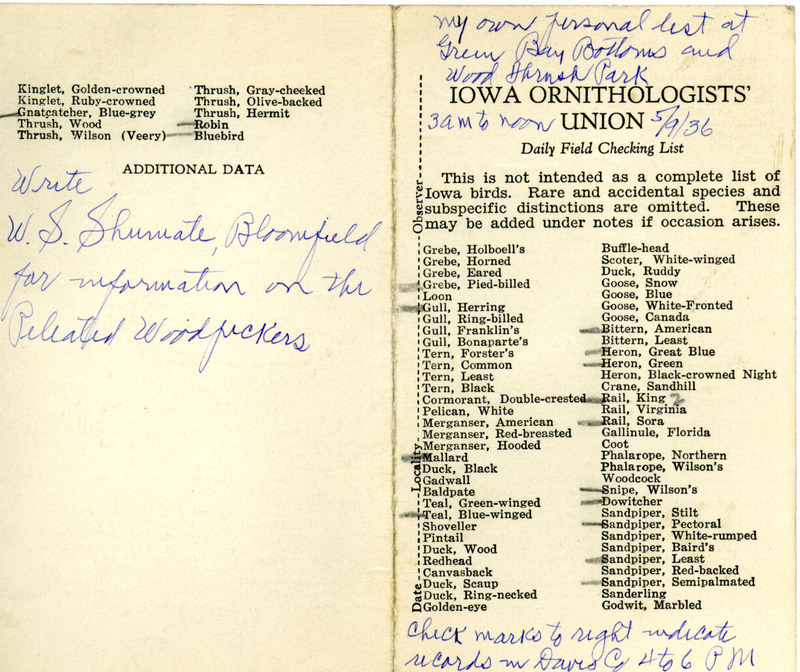 Kinglet, Golden-crowned
Kinglet, Ruby-crowned
Gnatcatcher, Blue-grey
Thrush, Wood
Thrush, Wilson (Veery)
Thrush, Gray-cheeked
Thrush, Olive-backed
Thrush, Hermit
Robin
Bluebird
ADDITIONAL DATA
Write
W. S. Shumate, Bloomfield
for information on the
Pileated Woodpeckers
my own personal list at
Green Bay Bottoms and
Wood Thrush Park
IOWA ORNITHOLOGISTS'
3 am to noon UNION 5/9/36
Daily Field Checking List
This is not intended as a complete list of
Iowa birds. Rare and accidental species and
subspecific distinctions are omitted. These
may be added under notes if occasion arises.
Date
Locality
Observer
Grebe, Holboell's
Grebe, Horned
Grebe, Eared
Grebe, Pied-billed
Loon
Gull, Herring
Gull, Ring-billed
Gull, Franklin's
Gull, Bonaparte's
Tern, Forster's
Tern, Common
Tern, Least
Tern, Black
Cormorant, Double-crested
Pelican, White
Merganser, American
Merganser, Red-breasted
Merganser, Hooded
Mallard
Duck, Black
Gadwall
Baldpate
Teal, Green-winged
Teal, Blue-winged
Shoveller
Pintail
Duck, Wood
Redhead
Canvasback
Duck, Scaup
Duck, Ring-necked
Golden-eye
Buffle-head
Scoter, White-winged
Duck, Ruddy
Goose, Snow
Goose, Blue
Goose, White-Fronted
Goose, Canada
Bittern, American
Bittern, Least
Heron, Great Blue
Heron, Green
Heron, Black-crowned Night
Crane, Sandhill
Rail, King 2
Rail, Virginia
Rail, Sora
Gallinule, Florida
Coot
Phalarope, Northern
Phalarope, Wilson's
Woodcock
Snipe, Wilson's
Dowitcher
Sandpiper, Stilt
Sandpiper, Pectoral
Sandpiper, White-rumped
Sandpiper, Baird's
Sandpiper, Least
Sandpiper, Red-backed
Sandpiper, Semipalmated
Sanderling
Godwit, Marbled
Check marks to right indicate
records in Davis Co, 4 to 6 PM